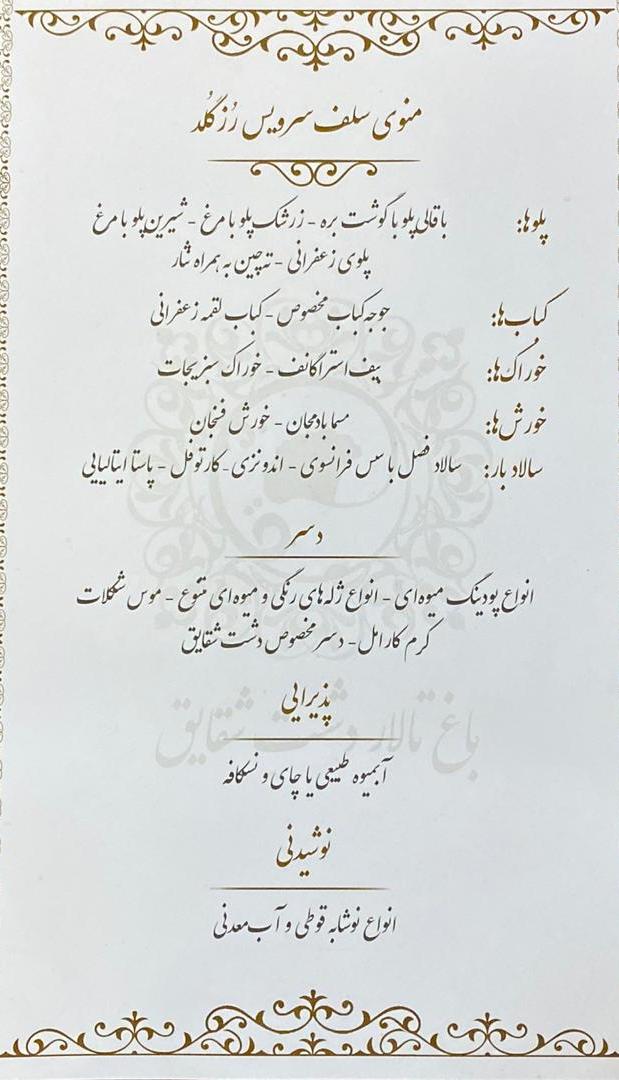 منوی سلف سرویس رُزگُلد
پلوها: باقالی پلو با گوشت بره - زرشک پلو با مرغ - شیرین پلو با مرغ
پلوی زعفرانی - ته چین به همراه نثار
کباب‌ها: جوجه کباب مخصوص - کباب لقمه زعفرانی
خوراک‌ها: بیف استراگانف - خوراک سبزیجات
خورش‌ها: مسما بادمجان - خورش فسنجان
سالاد بار: سالاد فصل با سس فرانسوی - اندونزی - کارتوفل - پاستا ایتالیایی
دسر
انواع پودینگ میوه‌ای - انواع ژله‌های رنگی و میوه‌ای متنوع - موس شکلات
کرم کارامل - دسر مخصوص دشت شقایق
پذیرایی
باغ تالار دشت شقایق
آبمیوه طبیعی یا چای و نسکافه
نوشیدنی
انواع نوشابه قوطی و آب معدنی